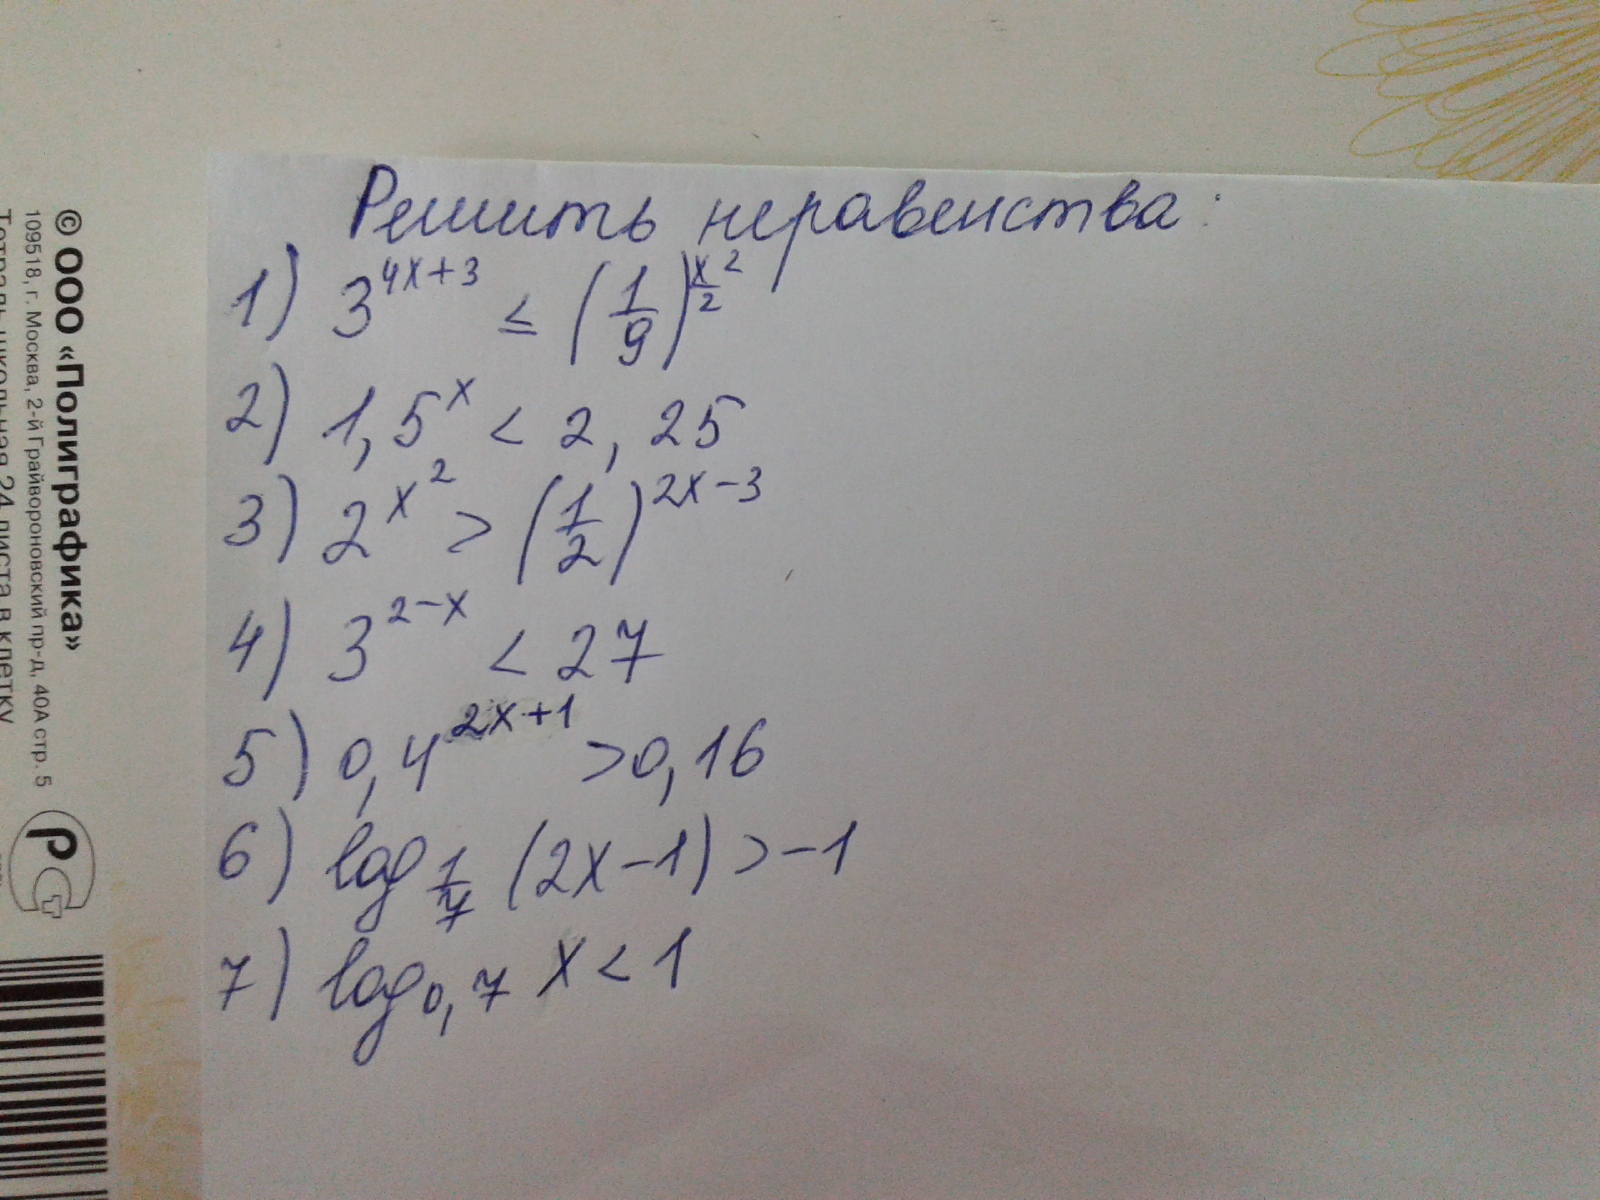 Решить неравенства:
1) 3^{4x+3} ≤ (1/9)^{x^2/2}
2) 1,5^x < 2,25
3) 2^{x^2} > (1/2)^{2x-3}
4) 3^{2-x} < 27
5) 0,4^{2x+1} > 0,16
6) log_{1/7} (2x-1) > -1
7) log_{0,7} x < 1
© ООО «Полиграфика»
109518, г. Москва, 2-й Грайвороновский пр-д, 40А стр. 5
Тетрадь школьная 24 листа в клетку
РС